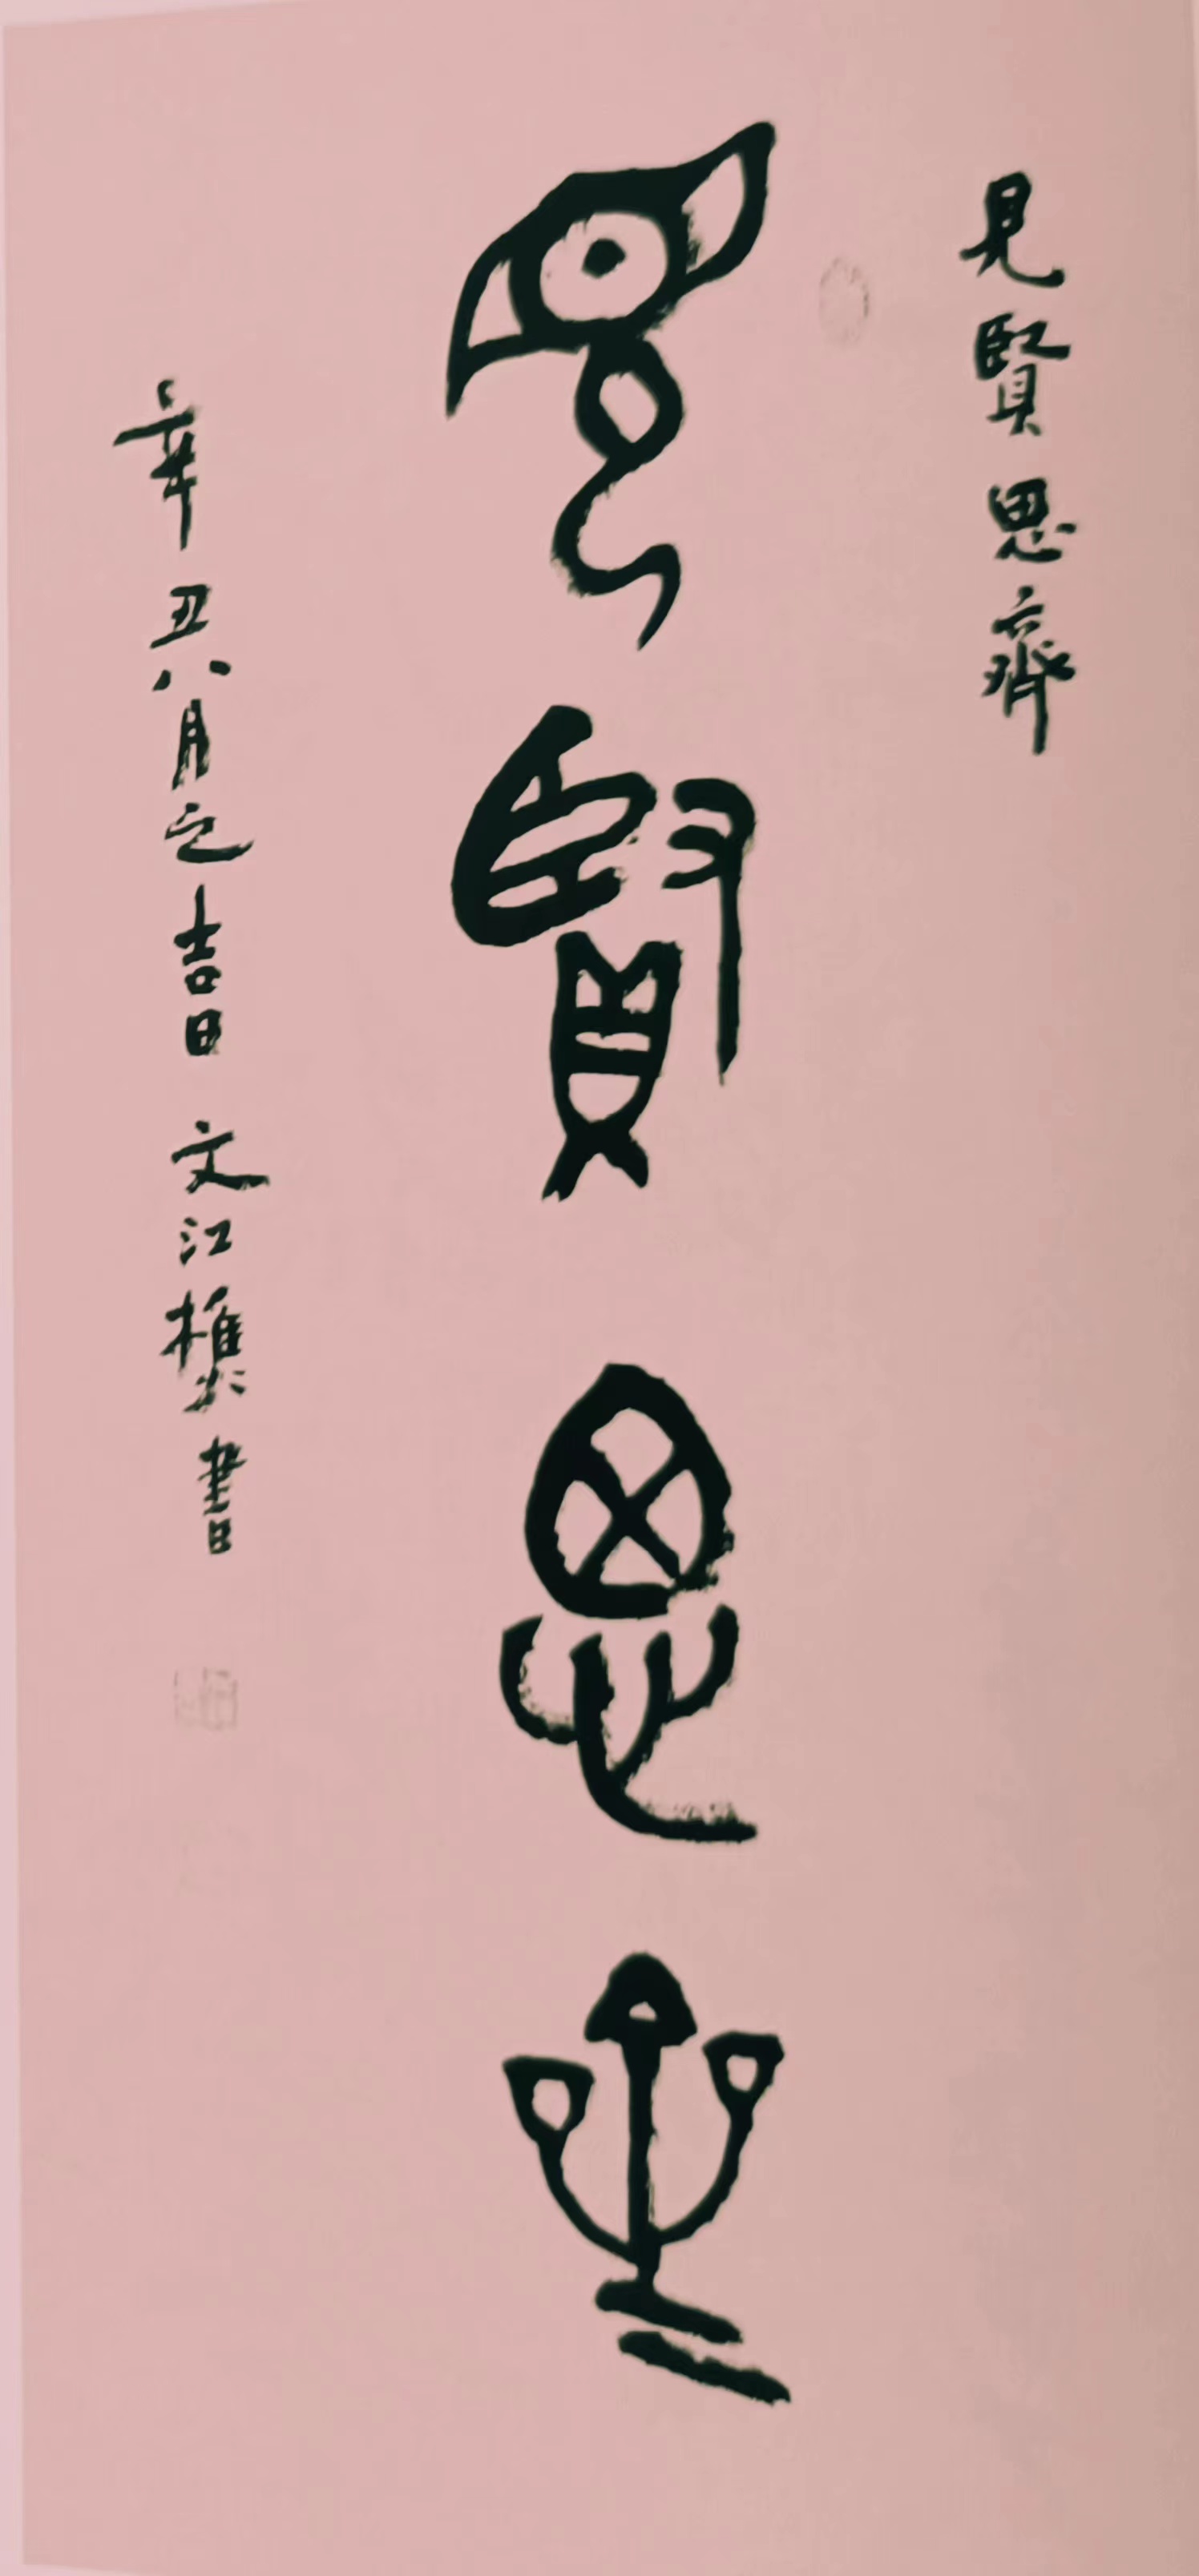 見賢思齊
見賢思齊
辛丑八月之吉日 文江樵書